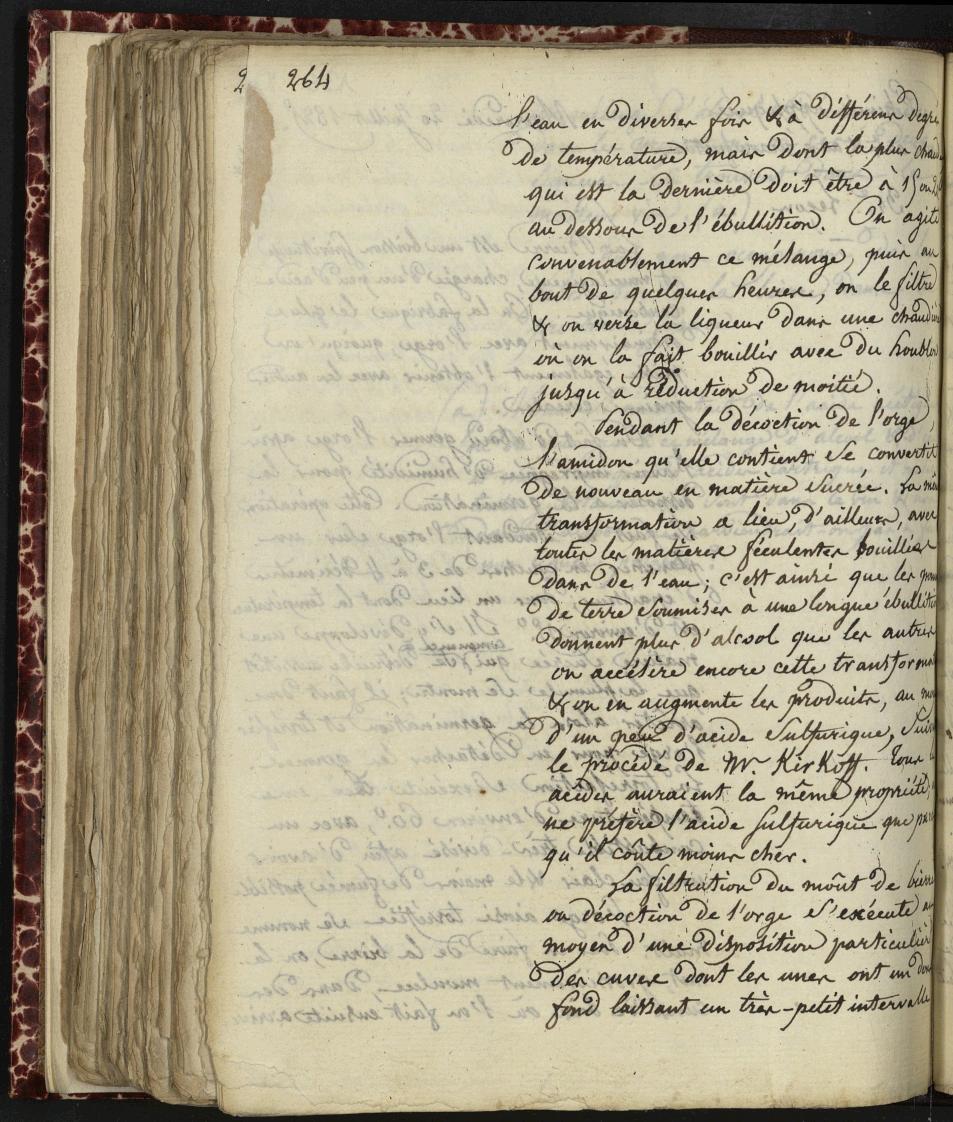 2 264
l'eau en diverses fois & à différens degrés
de température, mais dont la plus chaude
qui est la dernière doit être à 15 ou
au dessous de l'ébullition. On agite
convenablement ce mélange, puis au
bout de quelques heures, on le filtre
& on verse la liqueur dans une chaudière
où on la fait bouillir avec du houblon
jusqu'à réduction de moitié.
Pendant la décoction de l'orge,
l'amidon qu'elle contient se convertit
de nouveau en matière sucrée. La
transformation a lieu, d'ailleurs, avec
toutes les matières féculentes bouillies
dans de l'eau; c'est ainsi que les
de terre soumises à une longue ébullition
donnent plus d'alcool que les autres
on accélère encore cette transformation
& on en augmente les produits, au
d'un peu d'acide sulfurique,
le procédé de Mr. Kirkoff. Tous
acides auraient la même propriété,
ne préfère l'acide sulfurique que
qu'il coûte moins cher.
La filtration du moût de bierre
ou décoction de l'orge s'exécute au
moyen d'une disposition particulière
des cuves dont les unes ont un
fond laissant un très-petit intervalle